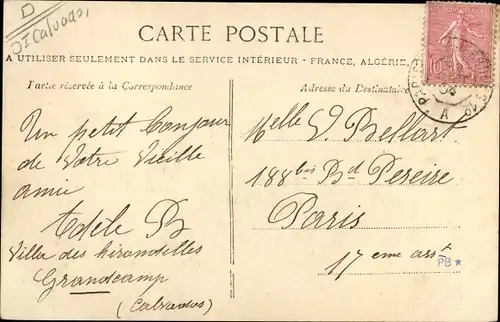 D
Calvados
CARTE POSTALE
A UTILISER SEULEMENT DANS LE SERVICE INTÉRIEUR - FRANCE, ALGÉRIE, T
Partie réservée à la Correspondance
Adresse du Destinataire
Un petit Bonjour
de Votre Vieille
amie
Adèle B
Villa des hirondelles
Grandcamp
(Calvados)
Melle V. Bellart
188 bis Bd Pereire
Paris
17 eme arrt
PB
10